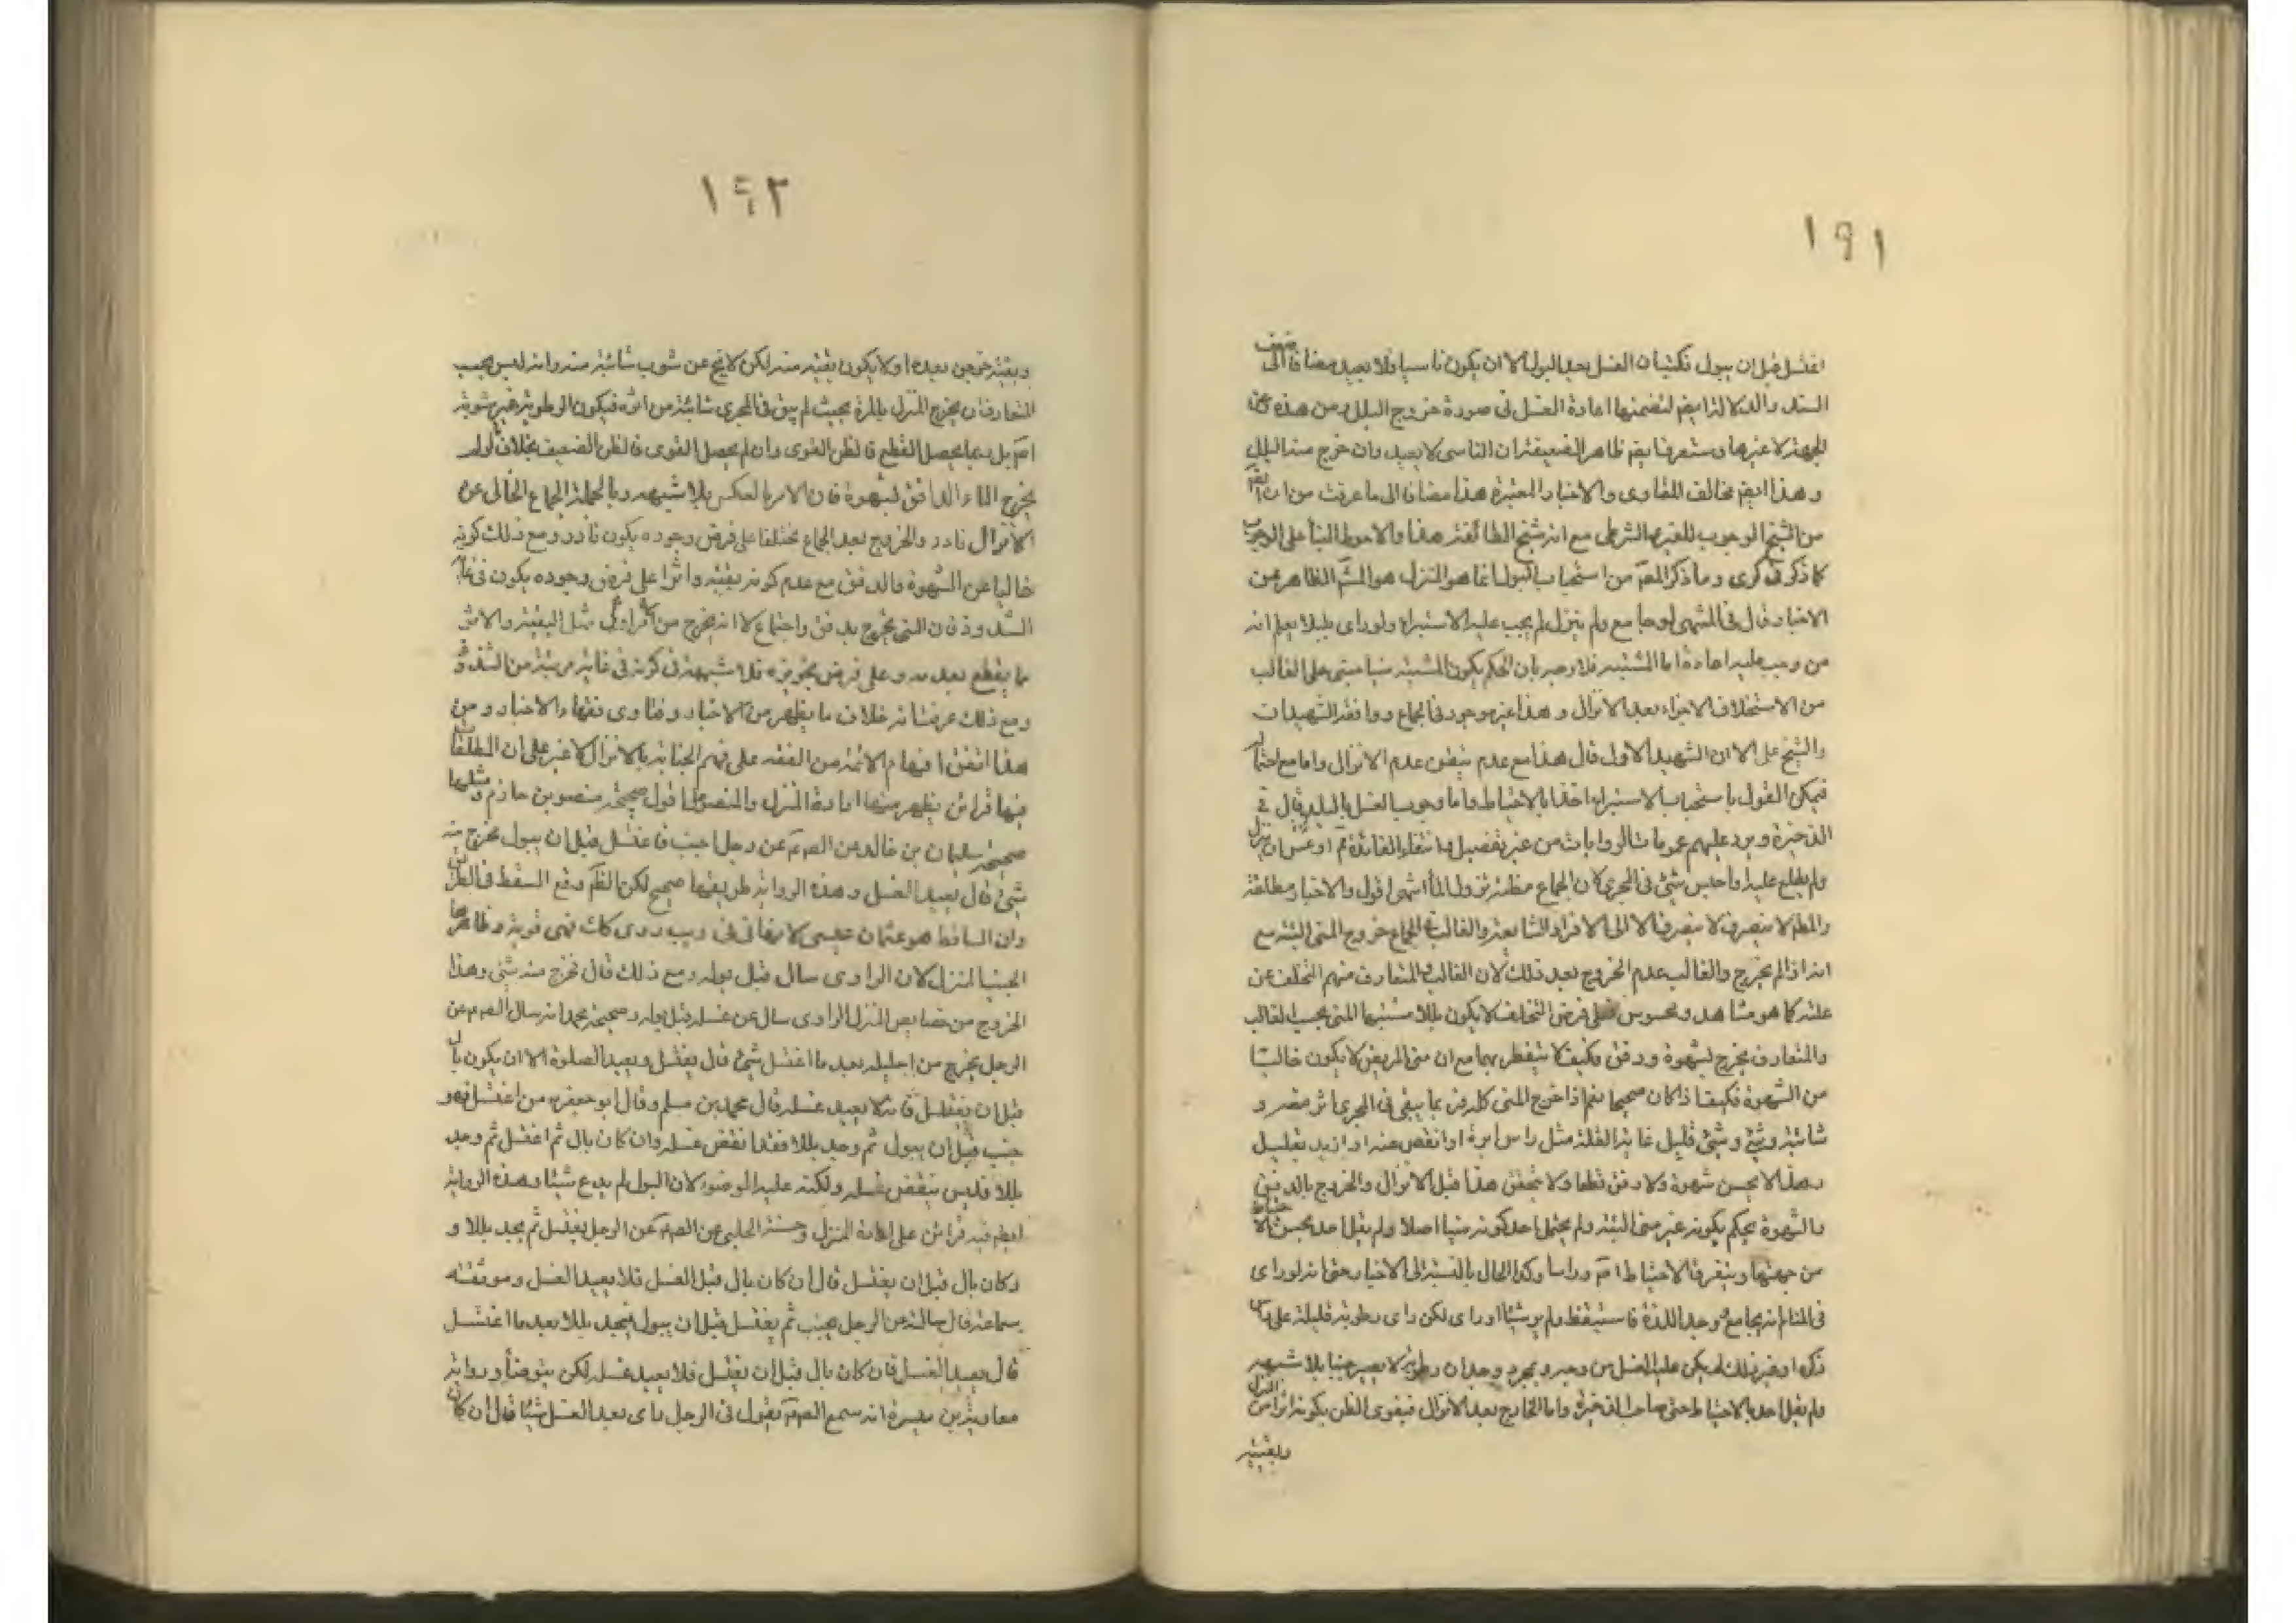 ١٩١
اغتسل قبل ان يبول فكتب ان الغسل بعد البول الا ان يكون ناسيا فلا يعيد مضافا الى ضعف
السند والدلالة ايضم لتضمنها اعادة الغسل في صورة خروج البلل ومن هذه
الجهة لا غيرها وستعرف ايضم ظاهر الضعيفة ان الناسى لا يعيد وان خرج منه البلل
وهذا ايضم مخالف للفتاوى والاخبار المعتبرة هذا مضافا الى ما عرفت من ان
من الشيخ الوجوب للغيرى الشرطى مع انه شيخ الطائفة هذا والاحوط البنأ على الوجوب
كما ذكره فى كرى وما ذكر المصم من استحباب البول انما هو المنزل هو المشم الظاهر من
الاخبار قال فى المنتهى لو جامع ولم ينزل لم يجب عليه الاستبراء ولو راى بللا يعلم انه
منى وجب عليه اعادة اما المشتبه فلا وجه بان الحكم بكون المشتبه منيا مبنى على الغالب
من الاستخلاف الاجزاء بعد الانزال وهذا غير موجود فى الجماع ووافقه الشهيدان
والشيخ على الا ان الشهيد الاول قال هذا مع عدم تيقن عدم الانزال واما مع احتماله
فيمكن القول باستحباب الاستبراء اخذا بالاحتياط واما وجوب الغسل بالبلل قال فى
الذخيرة ويرد عليهم عمومات الروايات من غير تفصيل وانتفاء الفائدة ثم اذ عسى ان ينزل
ولم يطلع عليه واحتبس شئ فى المجرى لان الجماع مظنة نزول الماأ انتهى اقول والاخبار مطلقة
والمطلم لا ينصرف الا الى الافراد الشايعة والغالب فى الجماع خروج المنى البتة مع
انه اذا لم يخرج والغالب عدم الخروج بعد ذلك لان الغالب والمتعارف منهم التخلف عن
علته كما هو مشاهد ومحسوس فعلى فرض التخلف لا يكون بللا مشتبها المنى بحسب الغالب
والمتعارف يخرج لشهوة ودفق وكيف لا يتفطن بهما مع ان منى المريض لا يكون خاليا
من الشهوة فكيف اذا كان صحيحا نعم اذا خرج المنى كله ربما يبقى فى المجرى اثر منه و
شائبة وشئ قليل غاية القلة مثل راس ابرة او انقص منه او ازيد بقليل
وهذا لا يحس شهوة ولا دفق قطعا ولا يتحقق هذا قبل الانزال والخروج بالدفق
والشهوة يحكم بكونه غير منى البتة ولم يحتمل احد كونه منيا اصلا ولم يقل احد بحسن الاحتياط
من جهتها وبتعرف الاحتياط اصم وراسا وكذا الحال بالنسبة الى الاخبار حتى انه لو راى
فى المنام انه يجامع ووجد اللذة فاستيقظ ولم ير شيئا او راى لكن راى رطوبة قليلة على راس
ذكره او غير ذلك لم يكن عليه الغسل من وجه وبمجرد وجدان رطوبة لا يصير جنبا بلا شبهة
ولم يقل احد بالاحتياط حتى صاحب الذخيرة واما الخارج بعد الانزال فيقوى الظن بكونه اثرا من المنزل
وبقيته
١٩٢
وبقيته خرجن بعده او لا يكون بقيته منه لكن لا يخ عن شوب شائبة منه وانه ليس بحسب
المتعارف ان يخرج المنزل بالمرة بحيث لم يبق فى المجرى شائبة من اثره فيكون الرطوبة غير مشوبة
اصم بل ربما يحصل القطع فالظن القوى وان لم يحصل القوى فالظن الضعيف بخلاف ان لم
يخرج الماء الدافق لشهوة فان الامر بالعكس بلا شبهة وبالجملة الجماع الخالى عن
الانزال نادر والخروج بعد الجماع مختلفا على فرض وجوده يكون نادرا ومع ذلك كونه
خاليا عن الشهوة والدفق مع عدم كونه بقيته واثرا على فرض وجوده يكون فى غاية
الشذوذ فان المنى يخرج بدفق واجتماع لا انه يخرج من افراد مثل البقية والاثر
ما يقطع بعدمه وعلى فرض تجويزه فلا شبهة فى كونه فى غاية مرتبة من الشذوذ
ومع ذلك عرفت انه خلاف ما يظهر من الاخبار وفتاوى فقهاء الاخبار ومن
هذا اتفق افهام الائمة من الفقه على فهم الجنابة بالانزال لا غير على ان المطلقات
فيها قرائن يظهر منها ارادة المنزل والمنصو اما قول صحيحة منصور بن حازم ومثلها
صحيحة سليمان بن خالد عن الصم عن رجل اجنب فاغتسل قبل ان يبول فخرج منه
شئ قال يعيد الغسل وهذه الرواية طريقها صحيح لكن الظم وقع السقط فى الطريق
وان الساقط هو عثمان عيسى كما رواه فى وروى كك فهى قوية وظاهرها
الجنب المنزل لان الراوى سال قبل بوله ومع ذلك قال فخرج منه شئ وهذا
الخروج من خصايص المنزل الراوى سال عن غسله قبل بوله وصحيحة محمد انه سال الصم عن
الرجل يخرج من احليله بعد ما اغتسل شئ قال يغتسل ويعيد الصلوة الا ان يكون بال
قبل ان يغتسل فانه لا يعيد غسله قال محمد بن مسلم وقال ابو جعفر من اغتسل وهو
جنب قبل ان يبول ثم وجد بللا فقد انتقض غسله وان كان بال ثم اغتسل ثم وجد
بللا فليس ينقض غسله ولكنه عليه الوضوء لان البول لم يدع شيئا وهذه الرواية
ايضم فيه قرائن على ارادة المنزل وحسنة الحلبى عن الصم عن الرجل يغتسل ثم يجد بللا و
وكان بال قبل ان يغتسل قال ان كان بال قبل الغسل فلا يعيد الغسل وموثقة
سماعة قال سالته عن الرجل يجنب ثم يغتسل قبل ان يبول فيجد بللا بعد ما اغتسل
قال يعيد الغسل فان كان بال قبل ان يغتسل فلا يعيد غسله لكن يتوضأ ورواية
معاوية بن ميسرة انه سمع الصم يقول فى الرجل راى بعد الغسل شيئا قال ان كان